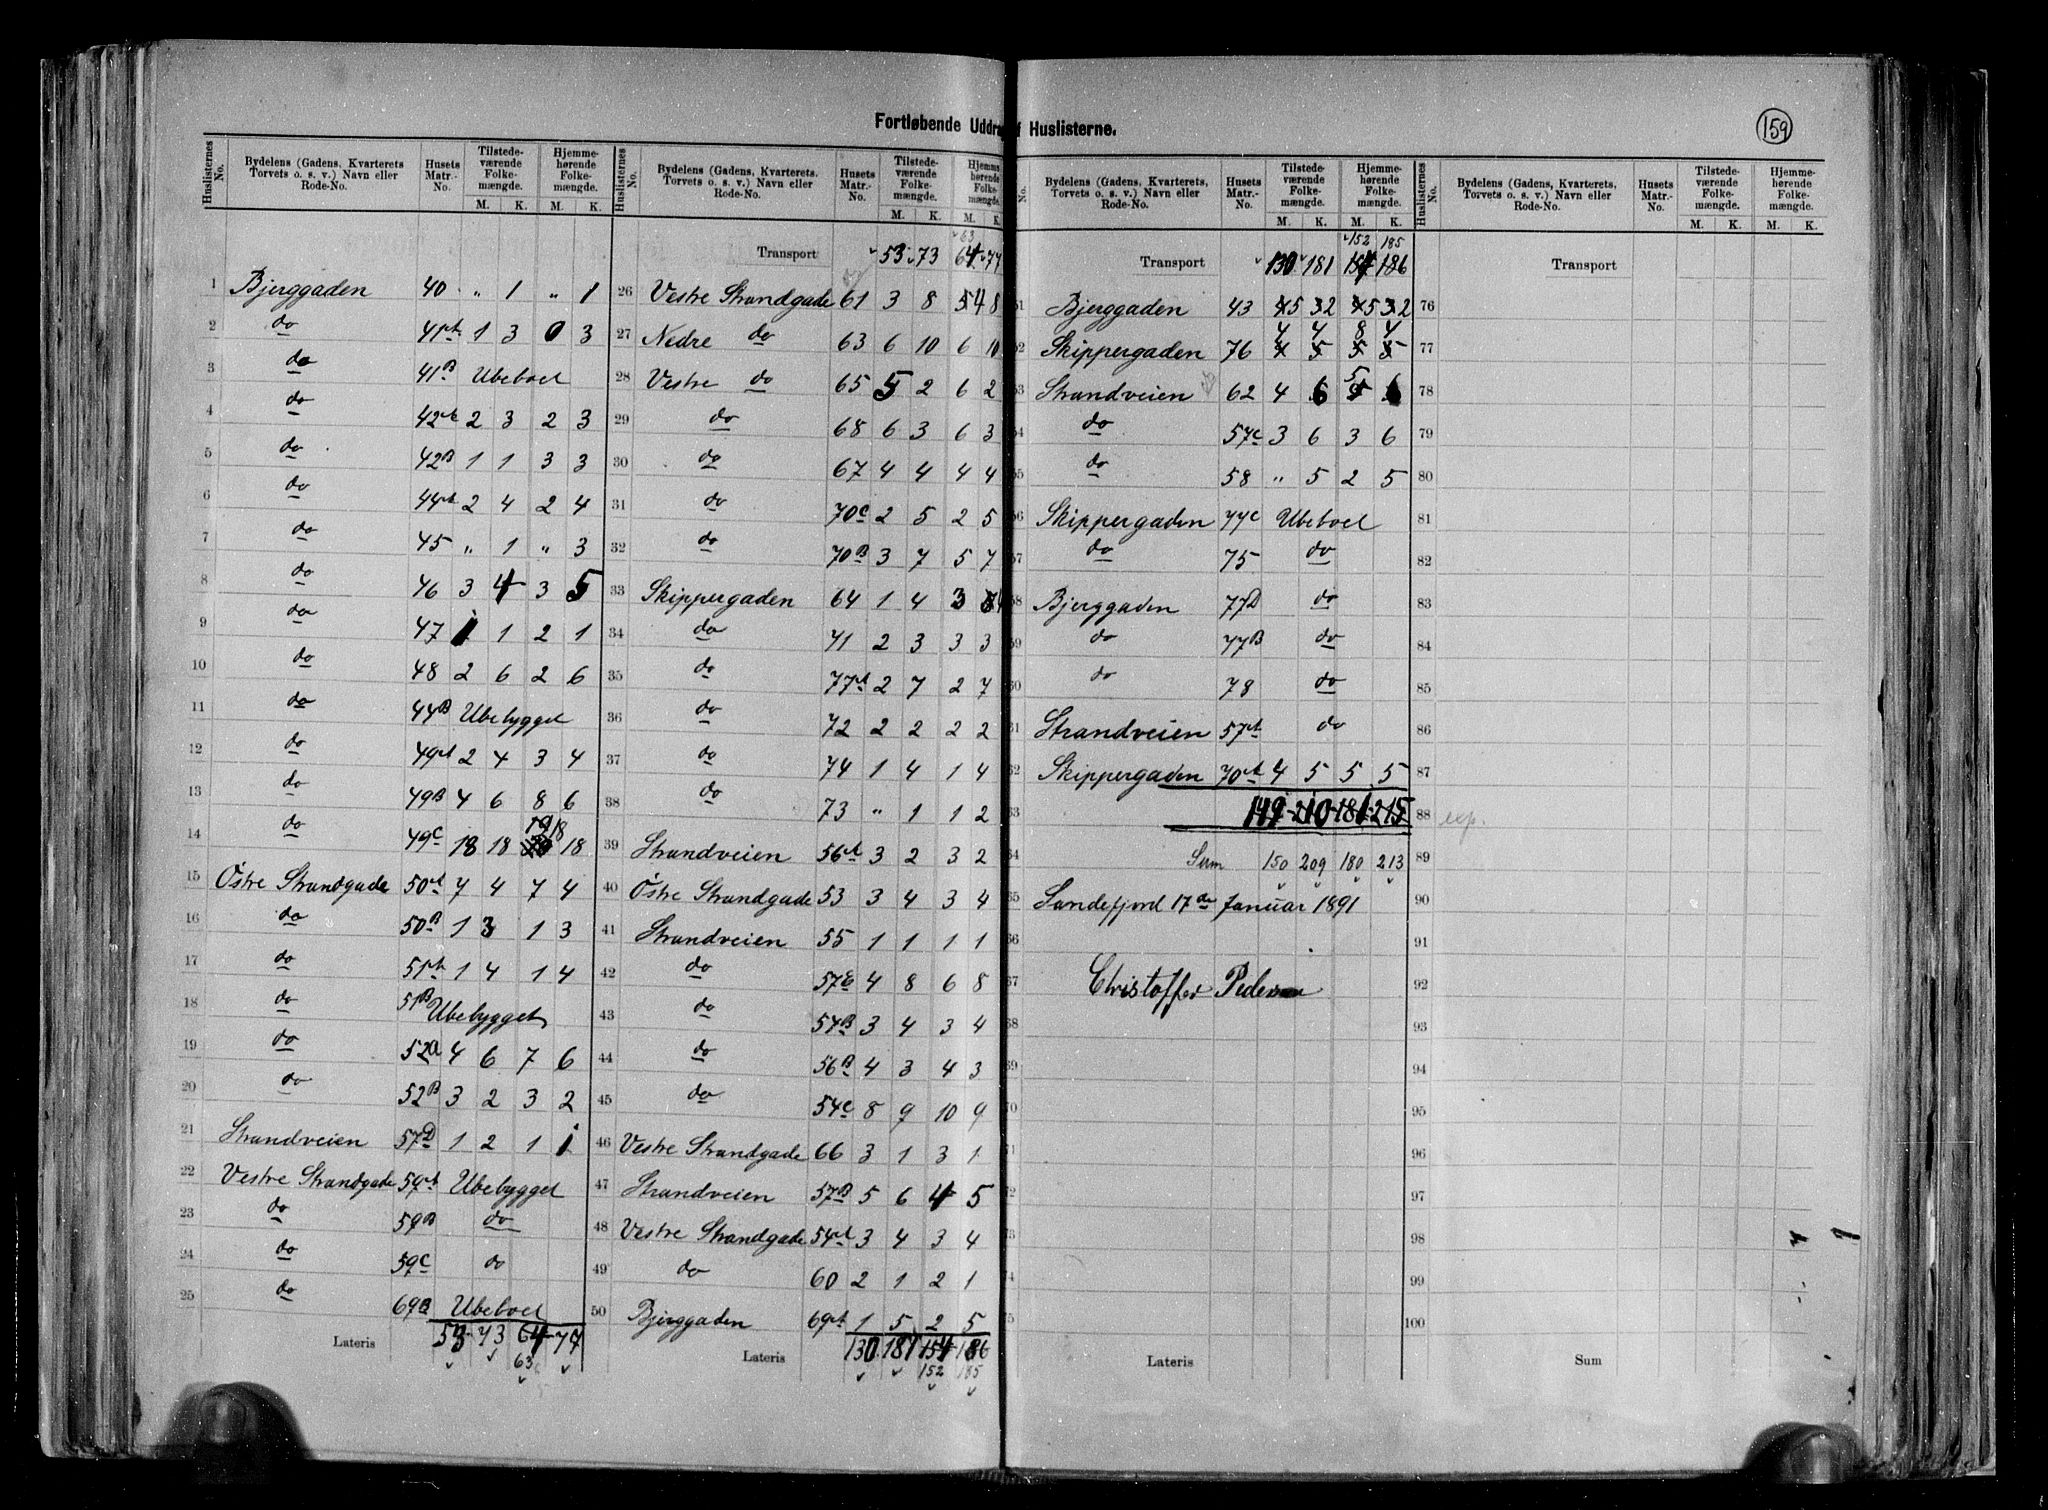 159
Fortløbende Uddra f Huslisterne.
Huslisternes No. | Bydelens (Gadens, Kvarterets Torvets o. s. v.) Navn eller Rode-No. | Husets Matr.-No. | Tilstede-værende Folke-mængde. M. K. | Hjemme-hørende Folke-mængde. M. K.
1 Bjerggaden 40 " 1 " 1
2 do 41A 1 3 0 3
3 do 41B Ubeboet
4 do 42A 2 3 2 3
5 do 42B 1 1 3 3
6 do 44A 2 4 2 4
7 do 45 " 1 " 3
8 do 46 3 4 3 5
9 do 47 1 1 2 1
10 do 48 2 6 2 6
11 do 44B Ubebygget
12 do 49A 2 4 3 4
13 do 49B 4 6 8 6
14 do 49C 18 18 19 18
15 Østre Strandgade 50A 7 4 7 4
16 do 50B 1 3 1 3
17 do 51A 1 4 1 4
18 do 51B Ubebygget
19 do 52a 4 6 7 6
20 do 52B 3 2 3 2
21 Strandveien 57D 1 2 1 1
22 Vestre Strandgade 59A Ubebygget
23 do 59B do
24 do 59C do
25 do 69B Ubeboet
Lateris 53 73 64 77
63
Huslisternes No. | Bydelens (Gadens, Kvarterets, Torvets o. s. v.) Navn eller Rode-No. | Husets Matr.-No. | Tilstede-værende Folke-mængde. M. K. | Hjemme-hørende Folke-mængde. M. K.
63
Transport 53 73 64 77
26 Vestre Strandgade 61 3 8 4 8
27 Nedre do 63 6 10 6 10
28 Vestre do 65 5 2 6 2
29 do 68 6 3 6 3
30 do 67 4 4 4 4
31 do 70C 2 5 2 5
32 do 70B 3 7 5 7
33 Skippergaden 64 1 4 3 4
34 do 71 2 3 3 3
35 do 77A 2 7 2 7
36 do 72 2 2 2 2
37 do 74 1 4 1 4
38 do 73 " 1 1 2
39 Strandveien 56A 3 2 3 2
40 Østre Strandgade 53 3 4 3 4
41 Strandveien 55 1 1 1 1
42 do 57E 4 8 6 8
43 do 54B 3 4 3 4
44 do 56B 4 3 4 3
45 do 54C 8 9 10 9
46 Vestre Strandgade 66 3 1 3 1
47 Strandveien 57B 5 6 4 5
48 Vestre Strandgade 54A 3 4 3 4
49 do 60 2 1 2 1
50 Bjerggaden 69A 1 5 2 5
Lateris 130 181 154 186
152 185
No. | Bydelens (Gadens, Kvarterets, Torvets o. s. v.) Navn eller Rode-No. | Husets Matr.-No. | Tilstede-værende Folke-mængde. M. K. | Hjemme-hørende Folke-mængde. M. K.
152 185
Transport 130 181 154 186
51 Bjerggaden 43 5 2 5 2
4 4 8 4
52 Skippergaden 76 4 5 5 5
5
53 Strandveien 62 4 6 4 6
54 do 57C 3 6 3 6
55 do 58 " 5 2 5
56 Skippergaden 77C Ubeboet
57 do 75 do
58 Bjerggaden 77D do
59 do 77B do
60 do 78 do
61 Strandveien 57A do
62 Skippergaden 70A 4 5 5 5
63 149 210 181 215
64 Sum 150 209 180 213
65 Sandefjord 17de Januar 1891
66
67 Christoffer Pedersen
68
69
70
71
72
73
74
75
Lateris
Huslisternes No. | Bydelens (Gadens, Kvarterets Torvets o. s. v.) Navn eller Rode-No. | Husets Matr.-No. | Tilstede-værende Folke-mængde. M. K. | Hjemme-hørende Folke-mængde. M. K.
Transport
76
77
78
79
80
81
82
83
84
85
86
87
88 exp.
89
90
91
92
93
94
95
96
97
98
99
100
Sum